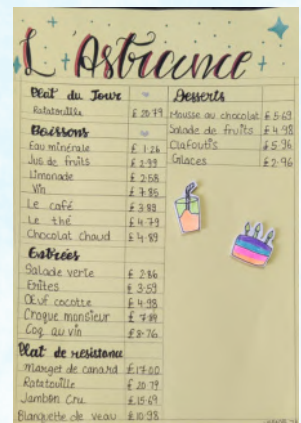 L'Astrance
Plat du Jour
Ratatouille £ 20.79
Boissons
Eau minérale £ 1.26
Jus de fruits £ 2.99
Limonade £ 2.58
Vin £ 7.85
Le café £ 3.89
Le thé £ 4.79
Chocolat chaud £ 4.89
Entrées
Salade verte £ 2.86
Frites £ 3.59
Œuf cocotte £ 4.98
Croque monsieur £ 7.89
Coq au vin £ 8.76
Plat de resistance
Marget de canard £17.00
Ratatouille £ 20.79
Jambon Cru £15.69
Blanquette de veau £10.98
Desserts
Mousse au chocolat £ 5.69
Salade de fruits £ 4.98
Clafoutis £ 5.96
Glaces £ 2.96